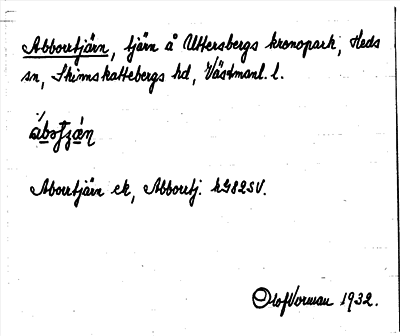 Abborrtjärn, tjärn å Uttersbergs kronopark, Heds
sn, Skinnskattebergs hd, Västmanl. l.
Aborrtjärn ek, Abborrtj. hG82SV.
Olof Vorman 1932.